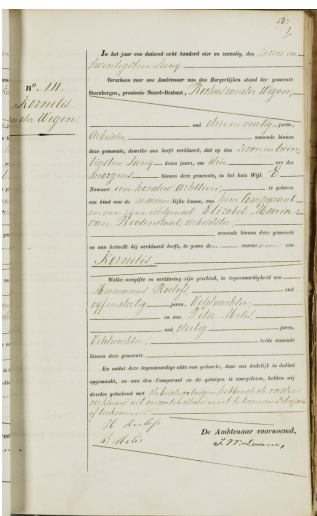 n°. 111.
Kornelis
van der Wegen.
In het jaar een duizend acht honderd vier en zeventig, den zeven en
twintigsten Juny
Verscheen voor ons Ambtenaar van den Burgerlijken stand der gemeente
Steenbergen, provincie Noord-Brabant,
van der Wegen,
oud drie en veertig jaren,
Arbeider, wonende binnen
deze gemeente, dewelke ons heeft verklaard, dat op den zeven en twin-
tigsten Juny dezes jaars, om drie ure des
morgens binnen deze gemeente, in het huis Wijk E
Nummer een honderd achttien, is geboren
een kind van de mannelijke kunne, van hem Comparant
en van zijne echtgenoot Elizabet Maria
van Roosendaal, arbeidster,
wonende binnen deze gemeente
en aan hetwelk hij verklaard heeft, te geven de voornaam van
Kornelis
Welke aangifte en verklaring zijn geschied, in tegenwoordigheid van
Hermanus Roelofs, oud
vijf en dertig jaren, Veldwachter,
en van Pieter Melis
oud dertig jaren,
Veldwachter, beide wonende
binnen deze gemeente
En omdat deze tegenwoordige akte van geboorte, door ons dadelijk in dubbel
opgemaakt, en aan den Comparant en de getuigen is voorgelezen, hebben wij
dezelve geteekend met de beide getuigen, hebbende de vader
verklaard uit onwetendheid niet te kunnen schrijven
of teekenen.
H Roelofs
P. Melis
De Ambtenaar voornoemd,